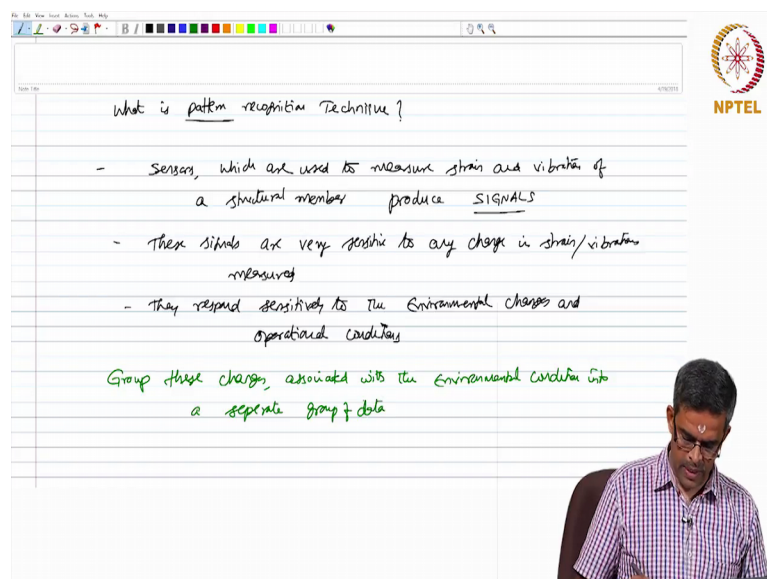 File Edit View Insert Actions Tools Help
B I
Note Title
4/19/2018
NPTEL
What is pattern recognition Technique?
- Sensors, which are used to measure strain and vibration of
a structural member produce SIGNALS
- These signals are very sensitive to any change in strain/vibration
measured
- They respond sensitively to the Environmental changes and
operational conditions
Group these changes, associated with the Environmental condition into
a seperate group of data